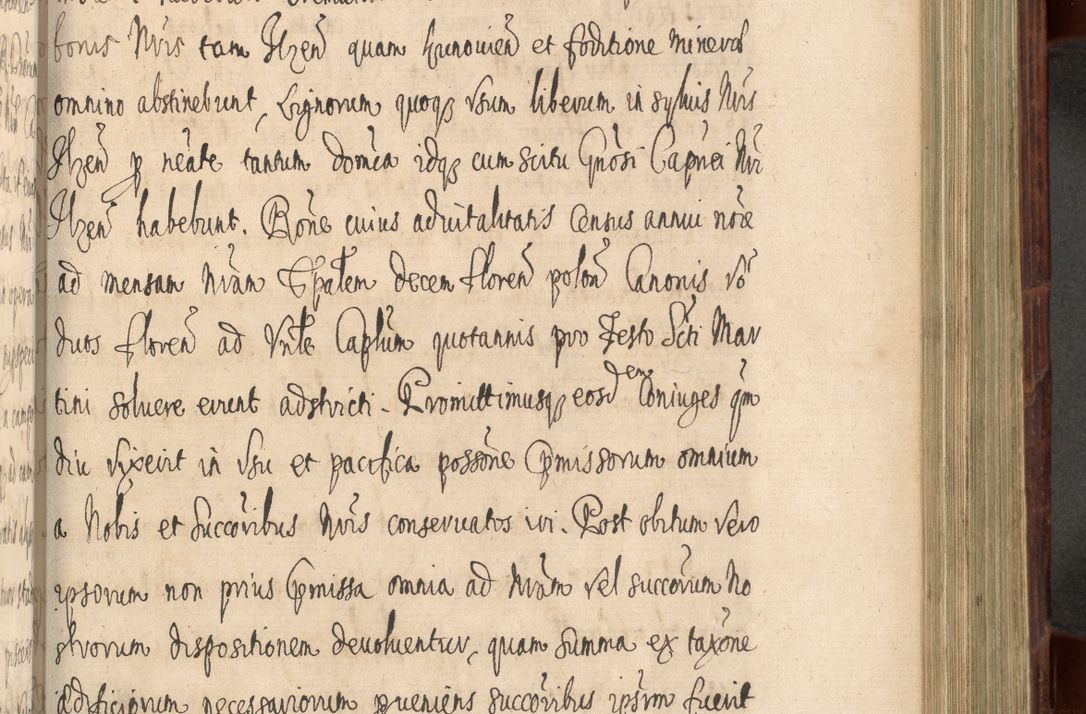 bonis Nris tam Ilzen̄ quam Kunouien̄ et foditione mineral
omnino abstinebunt, Lignorum quoqȝ vsum liberum in syluis Nris
Ilzen̄ ꝑ neāte tantum domc̄a idqȝ cum scitu Gnōsi Capnei Nri
Ilzen̄ habebunt. Rōne cuius aduitalitatis census annui nōe
ad mensam Nrām Ep̄alem decem floren̄ polon̄ Canonis vō
duos floren̄ ad Vnle Caplūm quotannis pro Festo Scti Mar
tini soluere erunt adstricti. Promittimusqȝ eosdem Coniuges qm̄
diu vixerit in vsu et pacifica possōne p̄missorum omnium
a Nobis et Succōribus Nr̄is conseruatos iri. Post obitum vero
ipsorum non prius p̄missa omnia ad Nrām vel succōrum No
strorum dispositionem deuoluentur, quam summa ex taxōne
ædificiorum necessariorum ꝓueniens succōribus ipsōrm fuerit